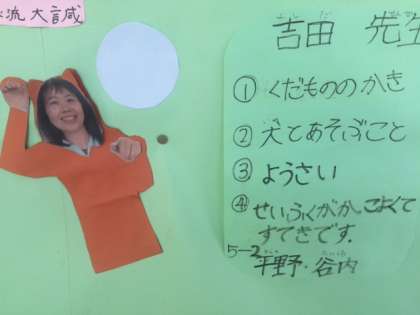 流 大言蔵
吉田 先生
① くだもののかき
② 犬とあそぶこと
③ ようさい
④ せいふくがかっこよくて
すてきです.
5-2 平野・谷内